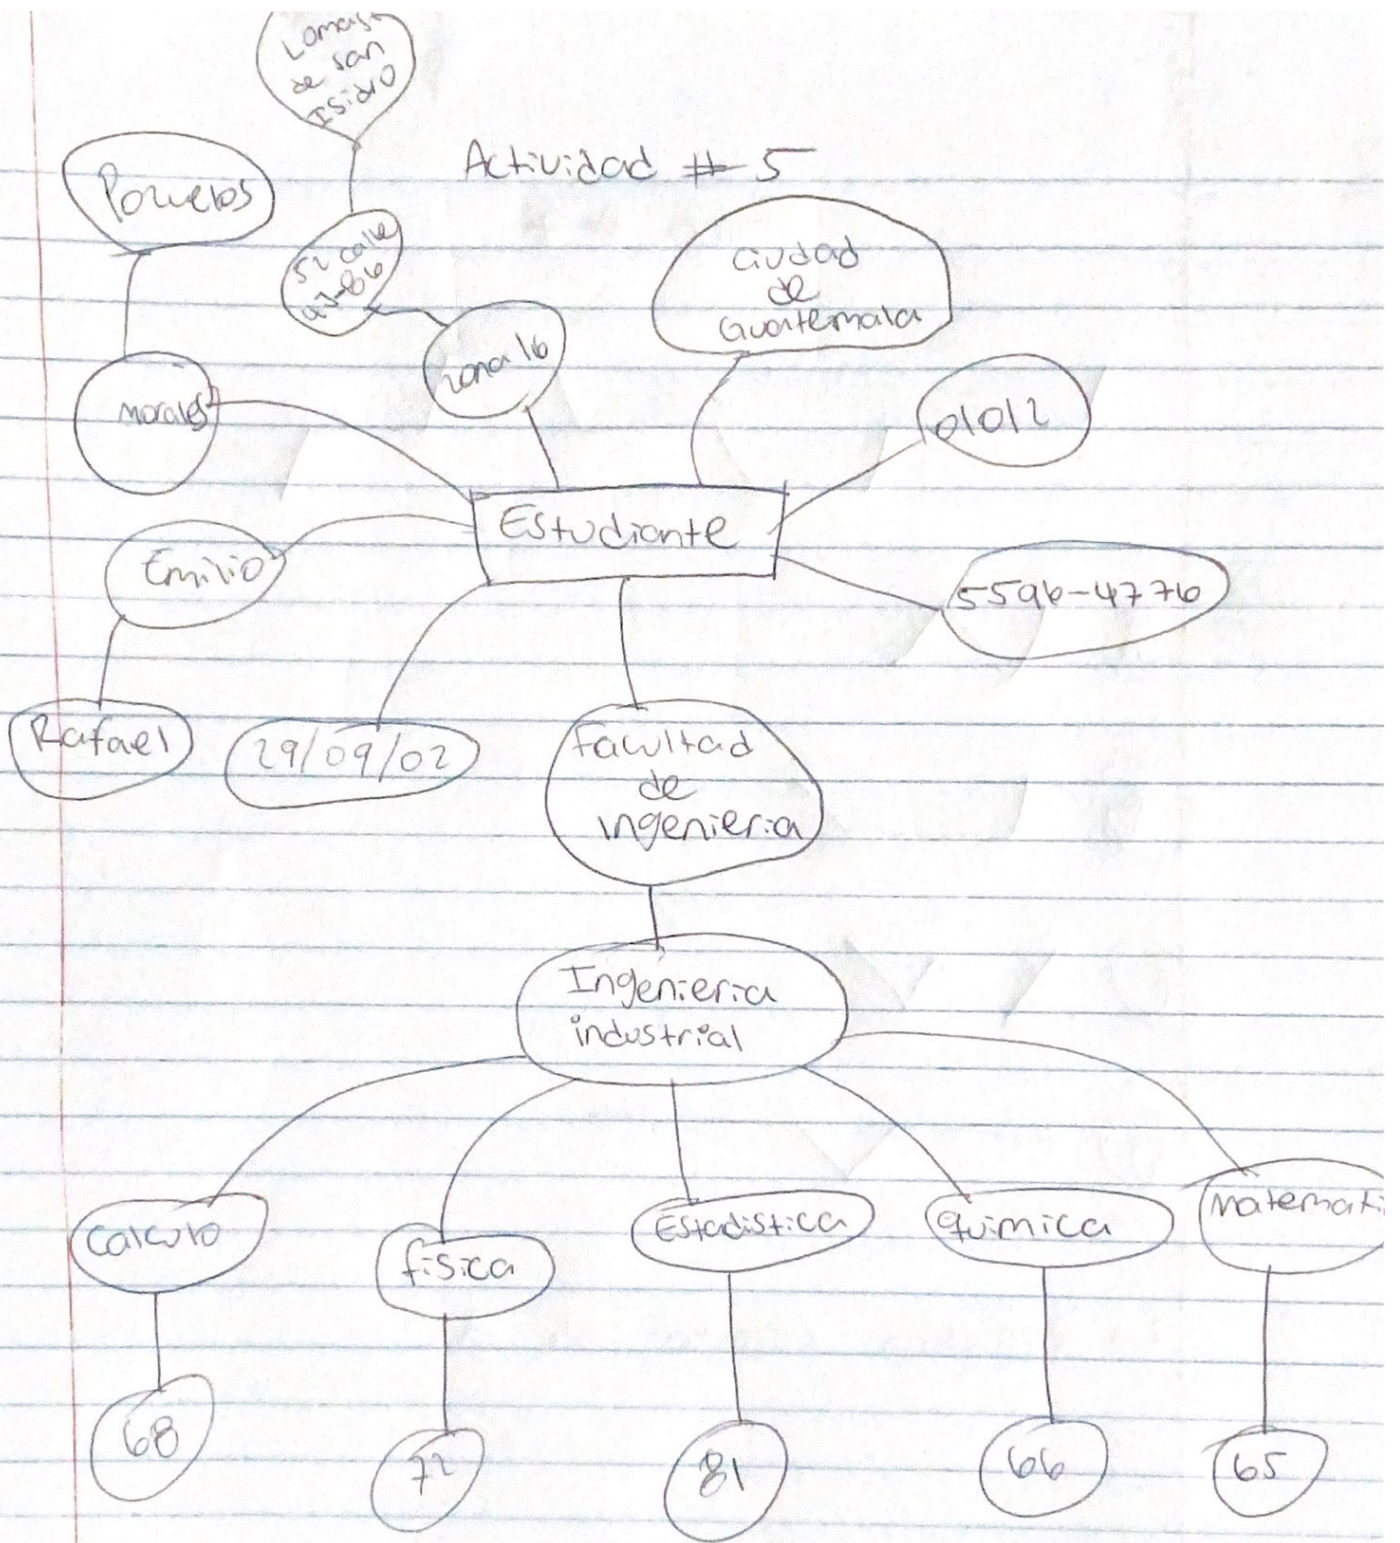 Lomas
de san
Isidro
Actividad # 5
52 calle
zona 16
Ciudad
de
Guatemala
Morales
01012
Estudiante
Emilio
5596-4776
Rafael
29/09/02
Facultad
de
ingenieria
Ingenieria
industrial
Calculo
fisica
Estadistica
quimica
Matemati
68
72
81
66
65